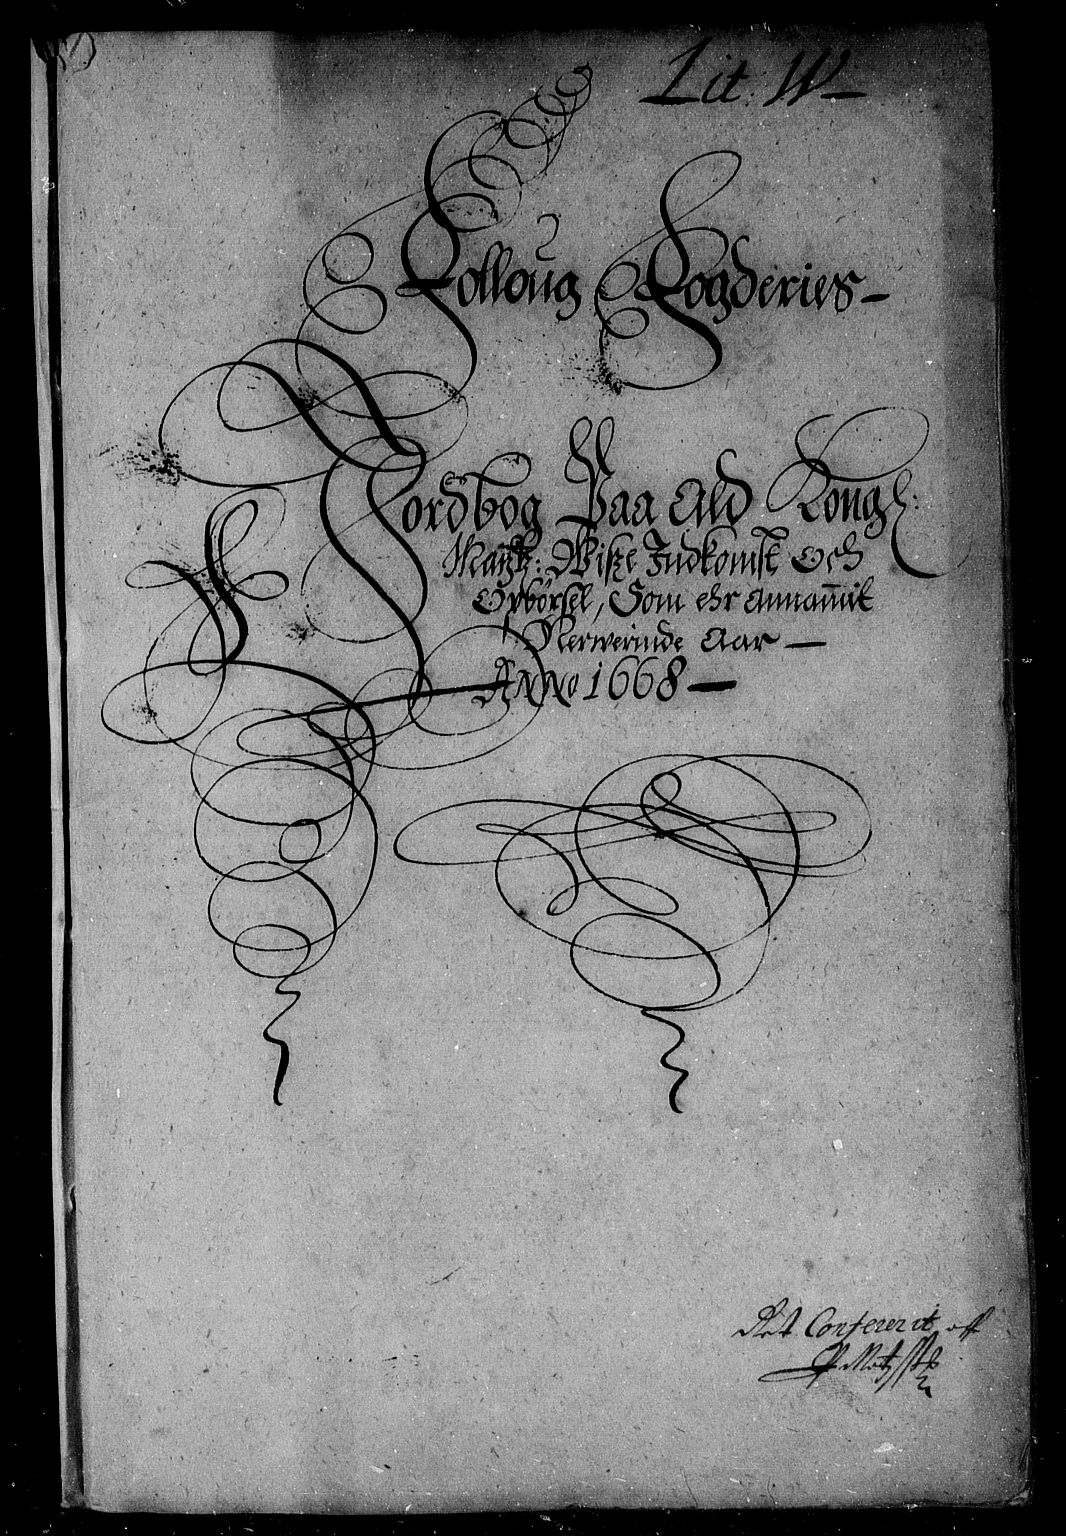 Lit: W
Folloug Fogderies
Jordbog Paa Ald Kongl:
Maytz: Wiße Indkomst Och
Opbörsel, Som ehr Annammit
Nerwerinde Aar
Anno 1668
Ret Confererit aff